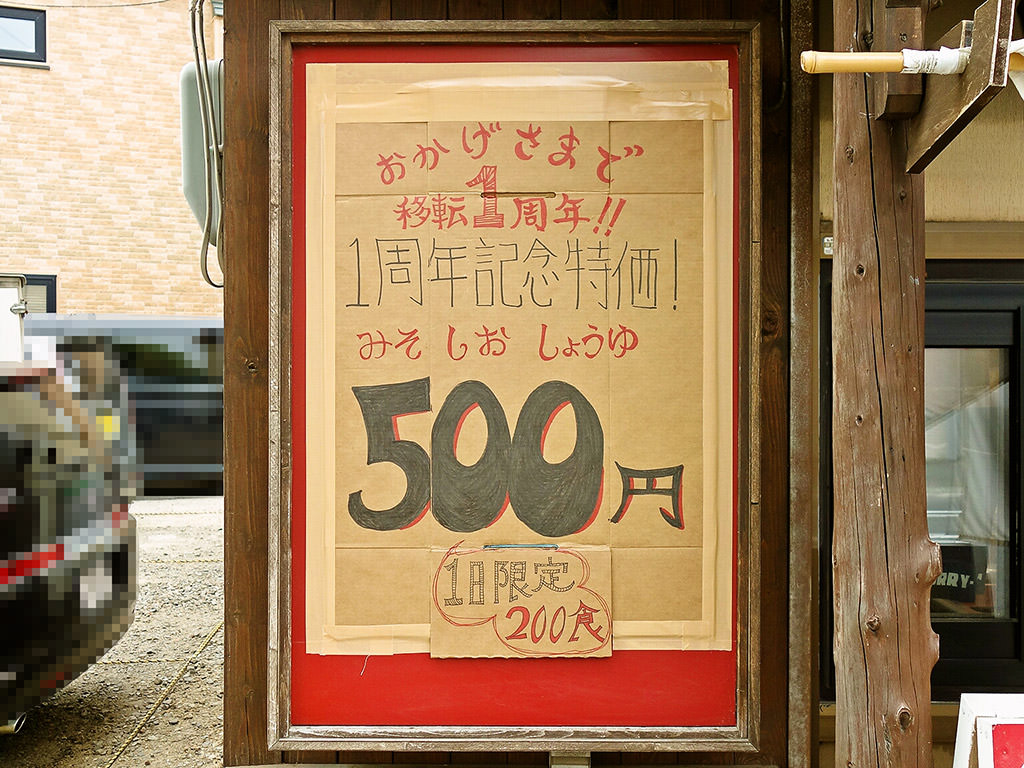 おかげさまで
移転1周年!!
1周年記念特価!
みそ しお しょうゆ
500円
1日限定
200食